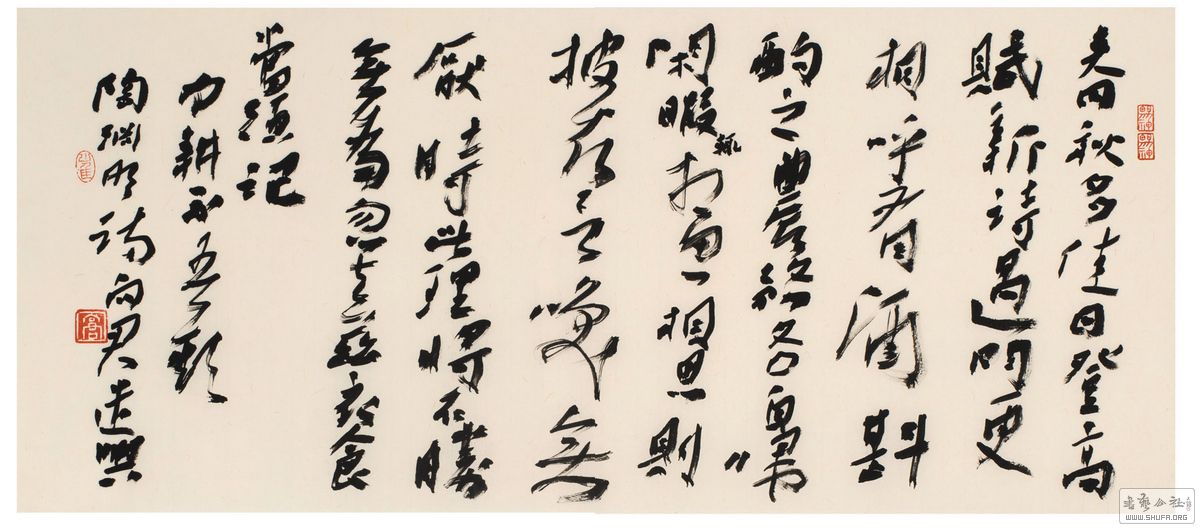 春秋多佳日登高
賦新詩過門更
相呼有酒斟
酌之農務各自歸
閑暇輒相思則
披衣言笑無
厭時此理將不勝
無為忽去茲衣食
當須記
力耕不吾欺
陶淵明詩向君遣興
书艺公社
WWW.SHUFA.ORG